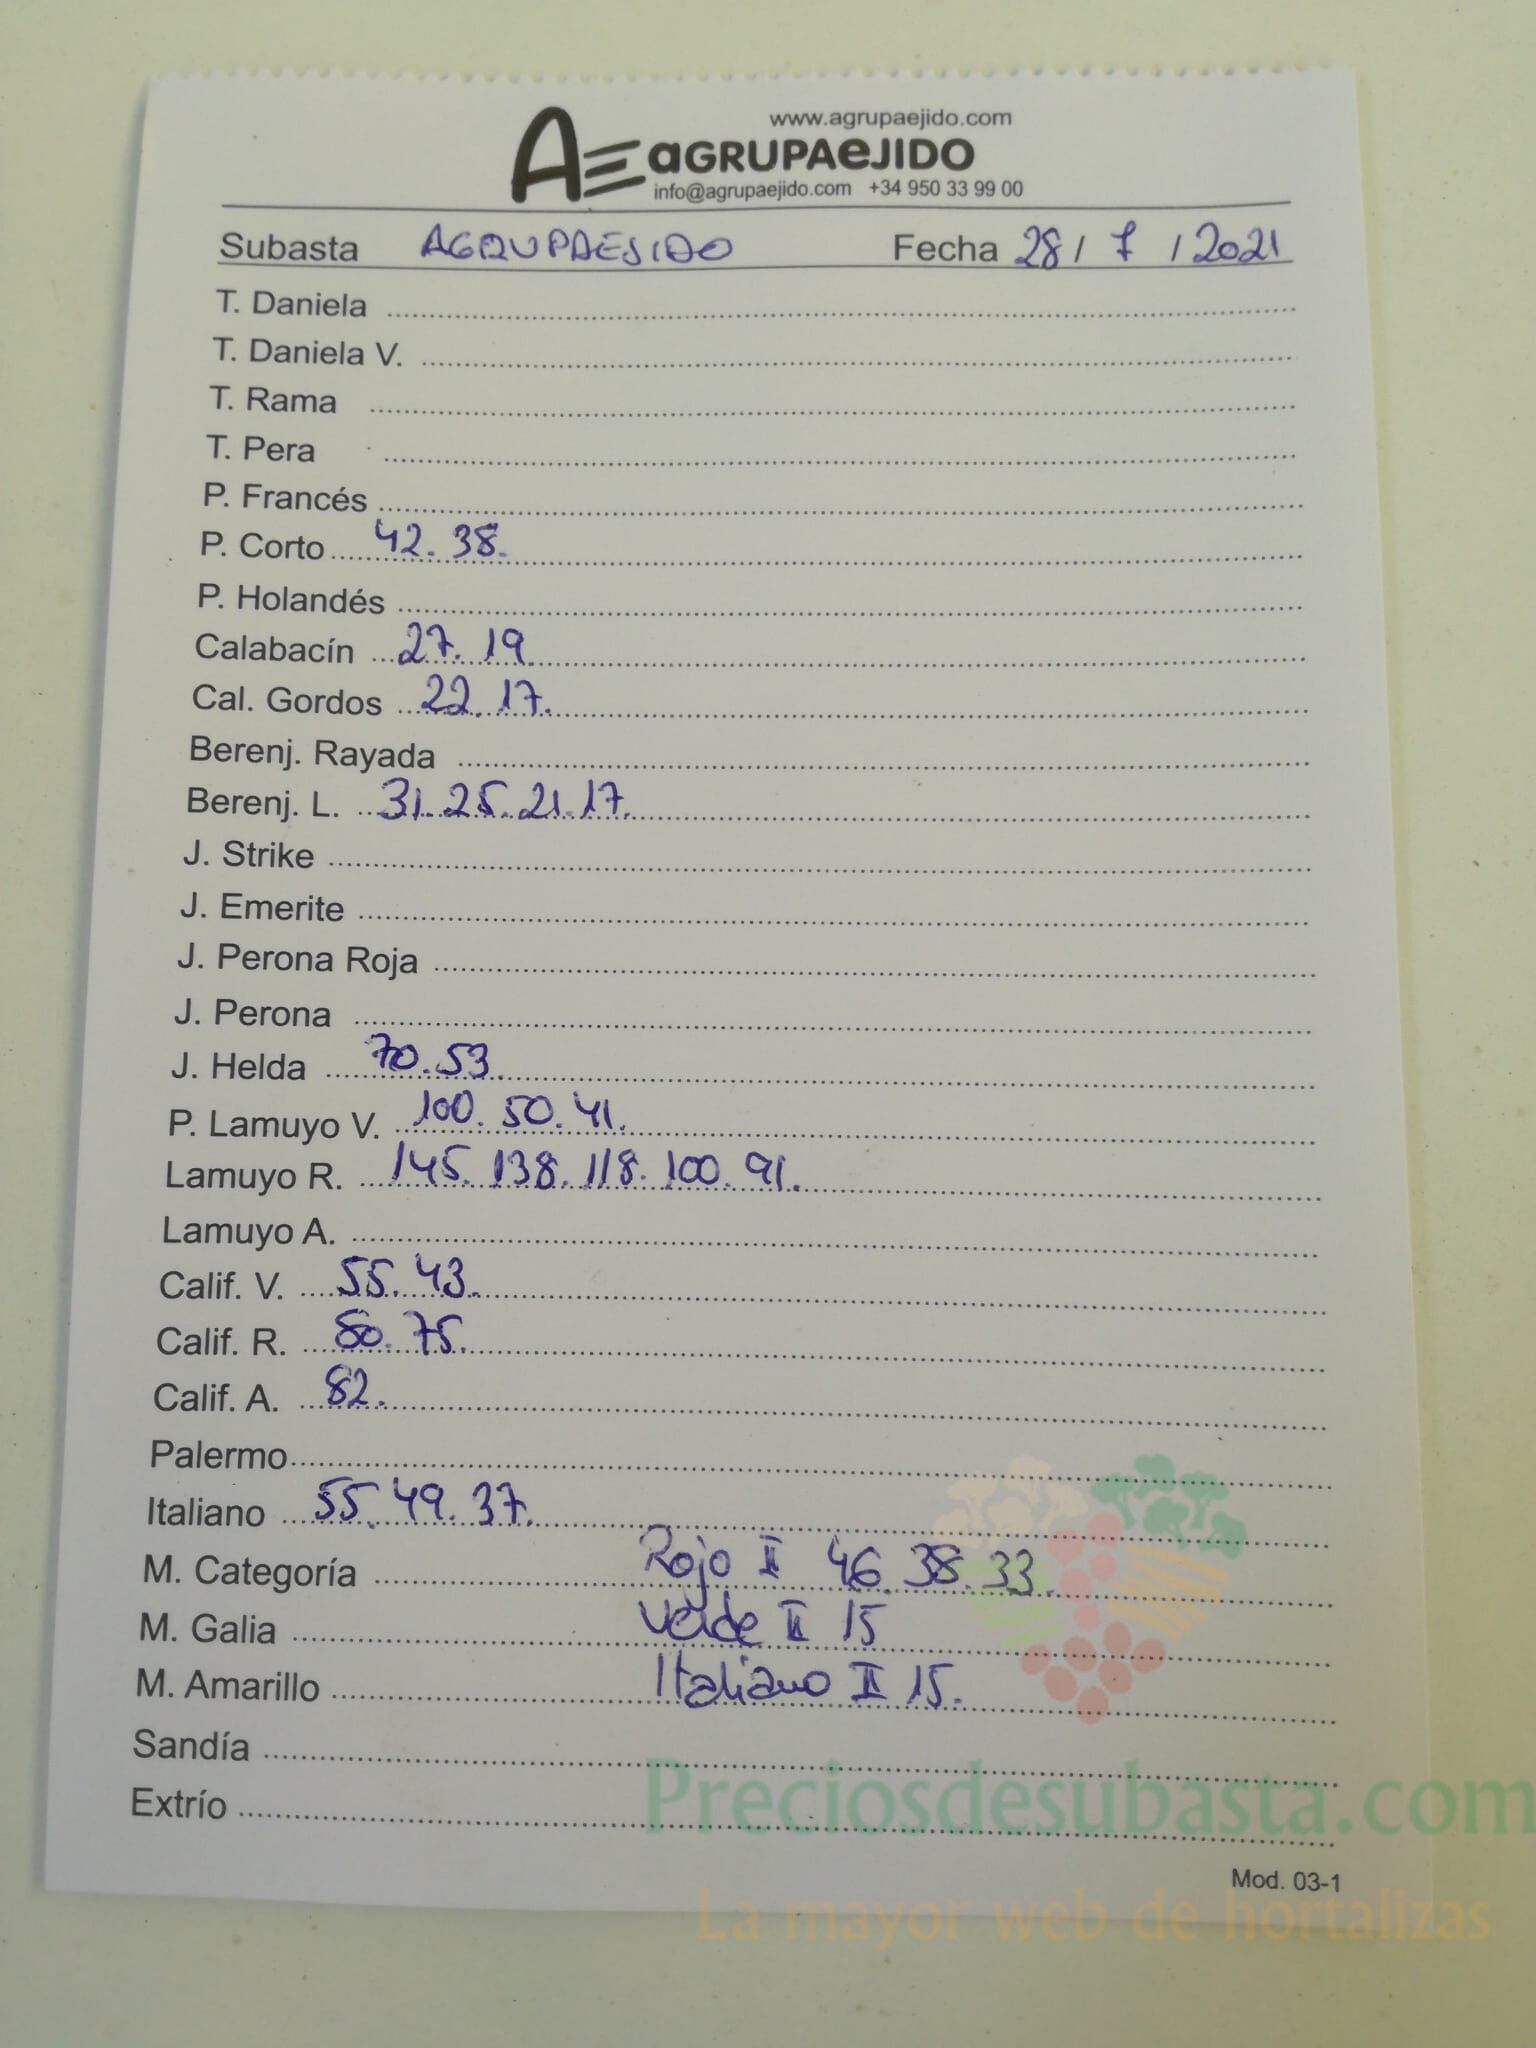 www.agrupaejido.com
AE aGRUPAeJIDO
info@agrupaejido.com +34 950 33 99 00
Subasta AGRUPAEJIDO Fecha 28 / 7 / 2021
T. Daniela
T. Daniela V.
T. Rama
T. Pera
P. Francés
P. Corto 42. 38.
P. Holandés
Calabacín 27. 19
Cal. Gordos 22. 17.
Berenj. Rayada
Berenj. L. 31. 25. 21. 17.
J. Strike
J. Emerite
J. Perona Roja
J. Perona
J. Helda 70. 53
P. Lamuyo V. 100. 50. 41.
Lamuyo R. 145. 138. 118. 100. 91.
Lamuyo A.
Calif. V. 55. 43.
Calif. R. 75.
Calif. A. 82.
Palermo
Italiano 55. 49. 37.
M. Categoría Rojo II 46. 38. 33.
M. Galia Verde II 15
M. Amarillo Italiano II 15.
Sandía
Extrío
Preciosdesubasta.com
Mod. 03-1
La mayor web de hortalizas